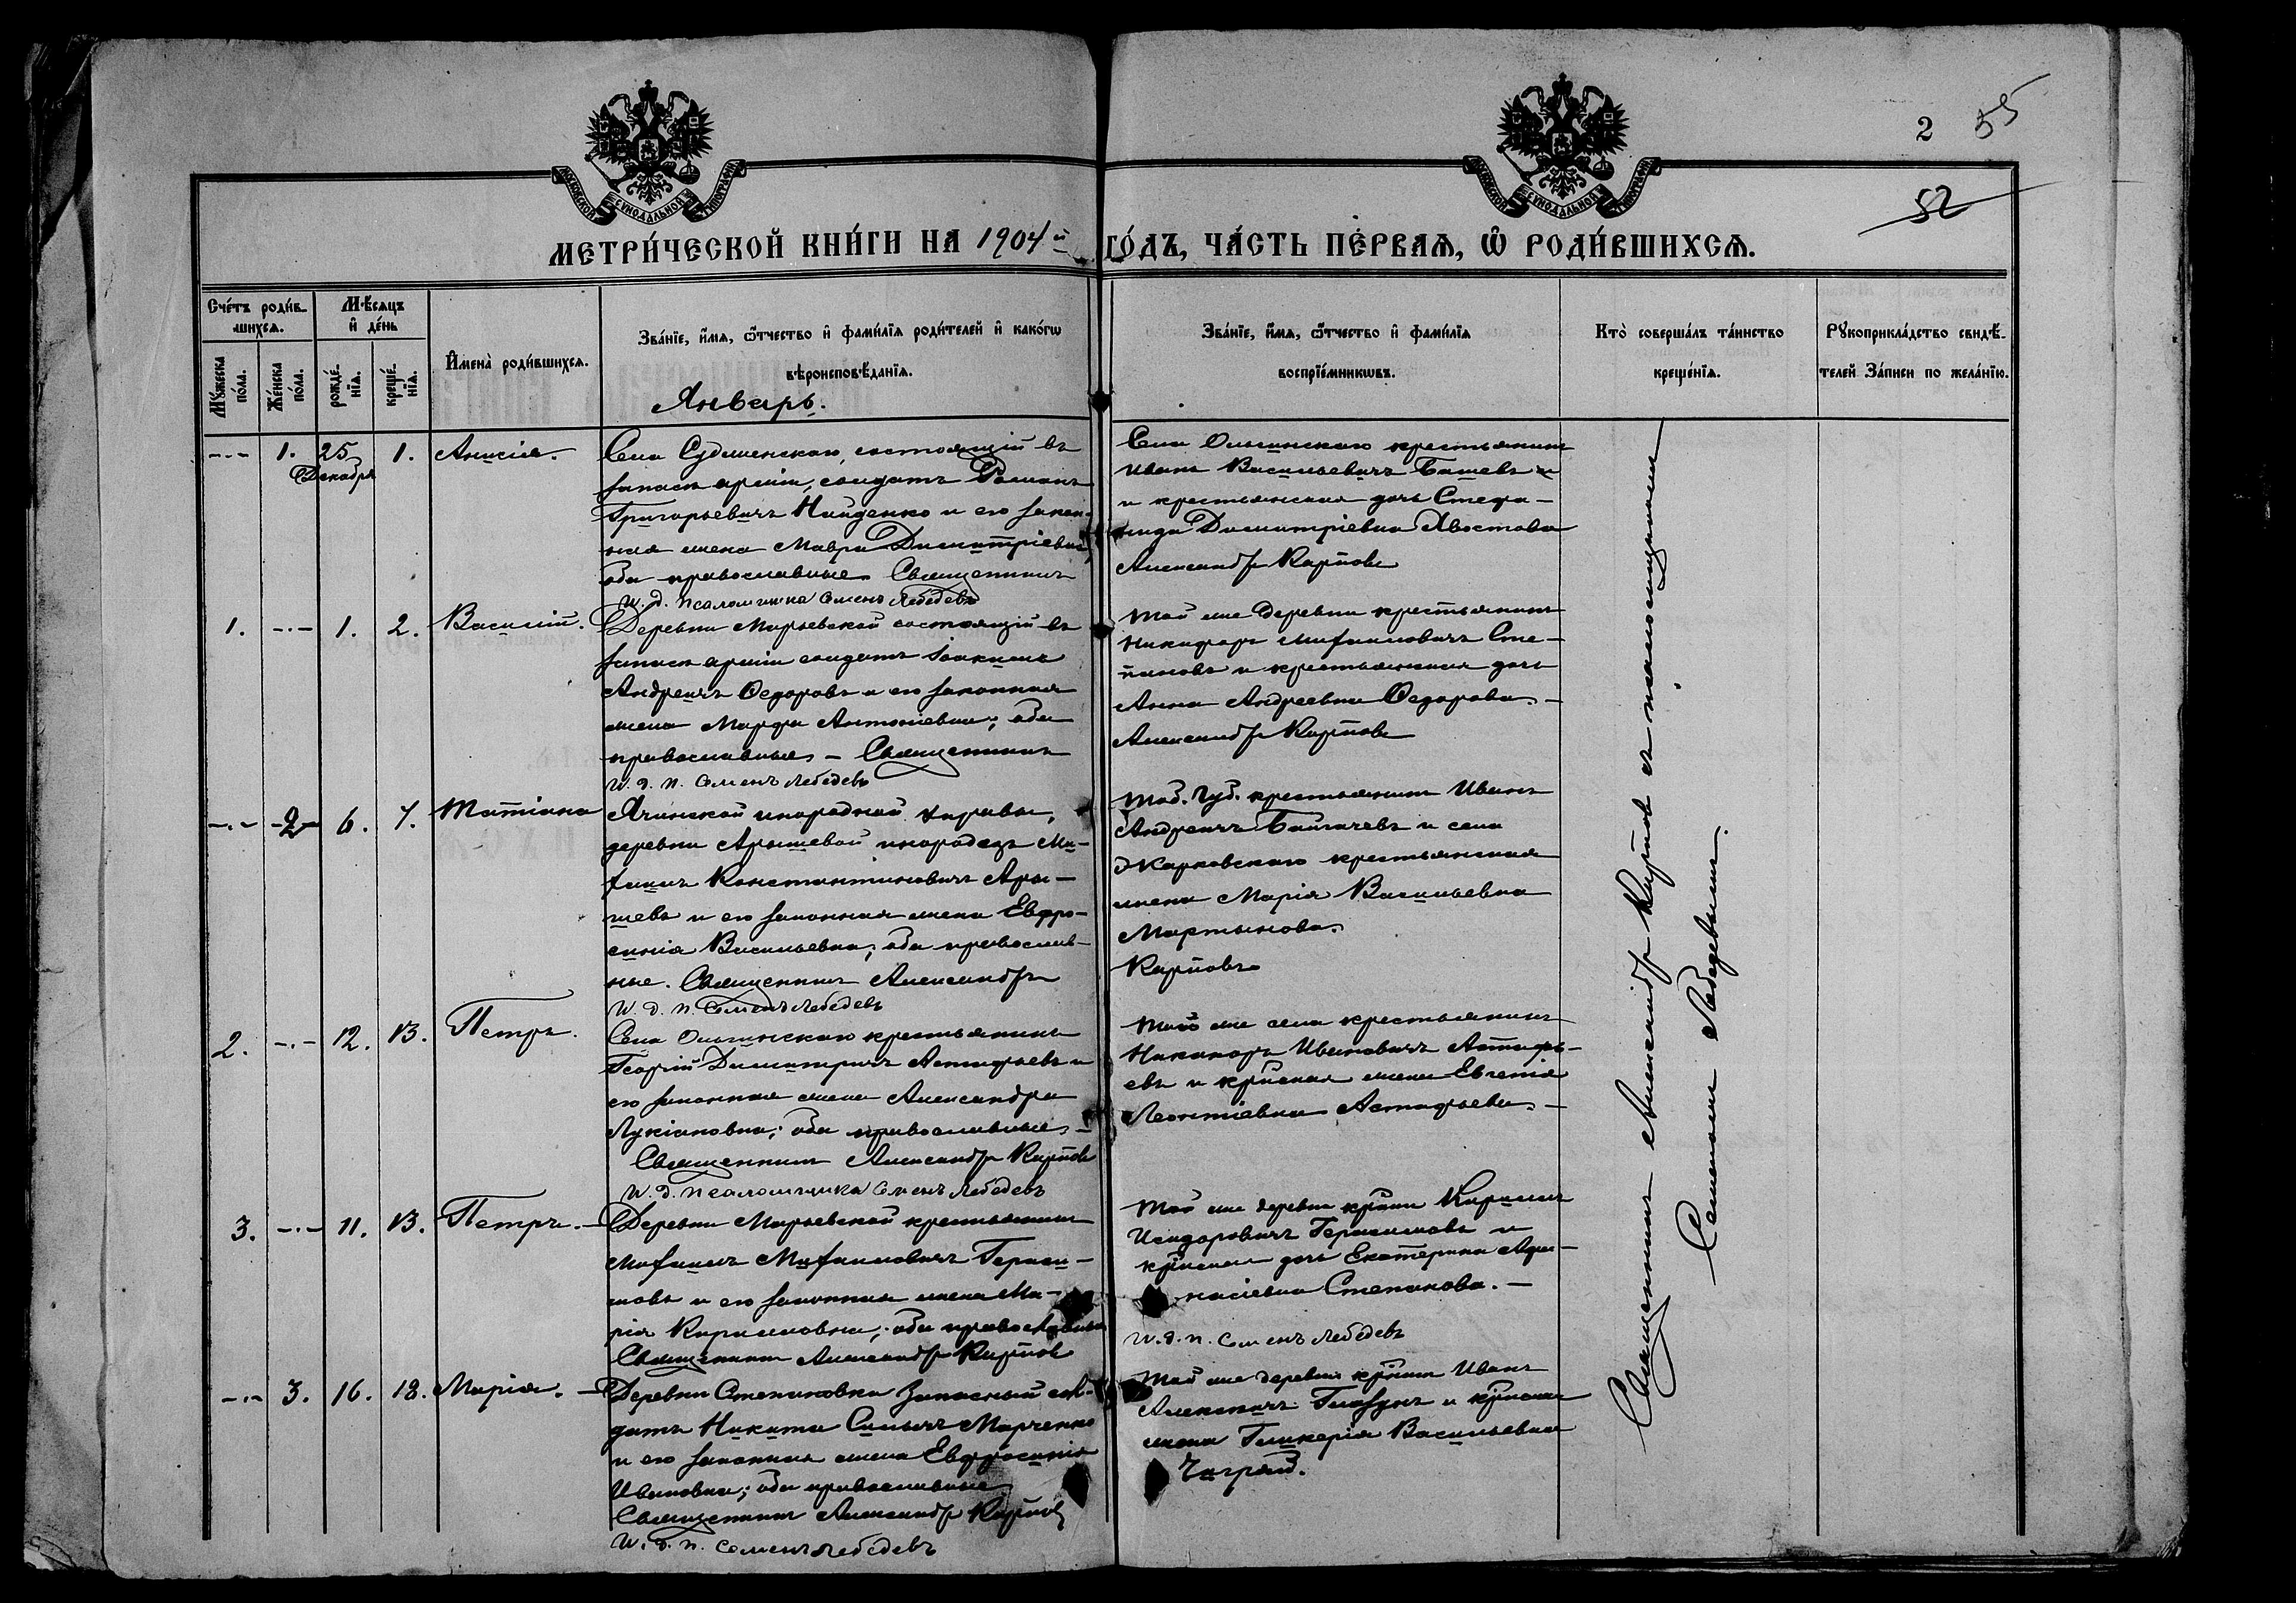 2 55
52
МОСКОВСКОЙ СУНОДАЛЬНОЙ ТИПОГРАФІИ
МОСКОВСКОЙ СУНОДАЛЬНОЙ ТИПОГРАФІИ
МЕТРИ́ЧЕСКОЙ КНИ́ГИ НА 1904й ГО́ДЪ, ЧА́СТЬ ПЕ́РВАѦ, Ѿ РОДИ́ВШИХСѦ.
Сче́тъ роди́в-
шихсѧ.
Му́жеска по́ла.
Же́нска по́ла.
Мѣ́сѧцъ
и҆ де́нь
рожде́-
нїѧ.
креще́-
нїѧ.
И҆мена̀ роди́вшихсѧ.
Зва́нїе, и҆́мѧ, ѻ҆́тчество и҆ фами́лїѧ роди́телей и҆ како́гѡ
вѣроисповѣ́данїѧ.
Январь.
Зва́нїе, и҆́мѧ, ѻ҆́тчество и҆ фами́лїѧ
воспрїе́мникѡвъ.
Кто̀ соверша́лъ та́инство
креще́нїѧ.
Рꙋкоприкла́дство свидѣ́-
телей за́писи по жела́нїю.
-·- 1. 25 Декабря 1. Анисія.
Села Судженскаго, состоящій въ
запасѣ арміи, солдатъ Романъ
Григорьевичъ Найденко и его закон-
ная жена Мавра Димитріевна,
оба православные. Священникъ
И. д. псаломщика Семенъ Лебедевъ
Села Ольгинскаго крестьянинъ
Иванъ Васильевичъ Башевъ
и крестьянская дочь Стефа-
нида Димитріевна Хвостова
Александръ Карповъ
1. -·- 1. 2. Василій.
Деревни Марьевской состоящій въ
запасѣ арміи солдатъ Іоакимъ
Андреичъ Ѳедоровъ и его законная
жена Марфа Антоніевна; оба
православные. — Священникъ
И. д. п. Семенъ Лебедевъ
Той же деревни крестьянинъ
Никифоръ Михаиловичъ Сте-
пановъ и крестьянская дочь
Анна Андреевна Ѳедорова. —
Александръ Карповъ
-·- 2 6. 7. Татіана
Ячинской инородной управы,
деревни Арышевой инородецъ Ми-
хаилъ Константиновичъ Ары-
шевъ и его законная жена Евфро-
синія Васильевна; оба православ-
ные. Священникъ Александръ
И. д. п. Семенъ Лебедевъ
Тоб. Губ. крестьянинъ Иванъ
Андреичъ Байгачевъ и села
Жарковскаго крестьянская
жена Марія Васильевна
Мартынова.
Карповъ
2. -·- 12. 13. Петръ.
Села Ольгинскаго крестьянинъ
Георгій Димитричъ Астафьевъ и
его законная жена Александра
Лукіановна; оба православные. —
Священникъ Александръ Карповъ
И. д. псаломщика Семенъ Лебедевъ
Того же села крестьянинъ
Никаноръ Ивановичъ Астафь-
евъ и крʼнская жена Евгенія
Леонтіевна Астафьева. —
3. -·- 11. 13. Петръ.
Деревни Марьевской крестьянинъ
Михаилъ Михаиловичъ Гераси-
мовъ и его законная жена Ма-
рія Кирилловна; оба православные
Священникъ Александръ Карповъ
Той же деревни крʼнинъ Кириллъ
Исидоровичъ Герасимовъ и
крʼнская дочь Екатерина Афа-
насіевна Степанова. —
И. д. п. Семенъ Лебедевъ
-·- 3. 16. 18. Марія. —
Деревни Степановки запасный сол-
датъ Никита Силычъ Марченко
и его законная жена Евфросинія
Ивановна; оба православные
Священникъ Александръ Карповъ
И. д. п. Семенъ Лебедевъ
Той же деревни крʼнинъ Иванъ
Алексѣичъ Глазунъ и крʼнская
жена Гликерія Васильевна
Священникъ Александръ Карповъ съ псаломщикомъ
Семеномъ Лебедевымъ.